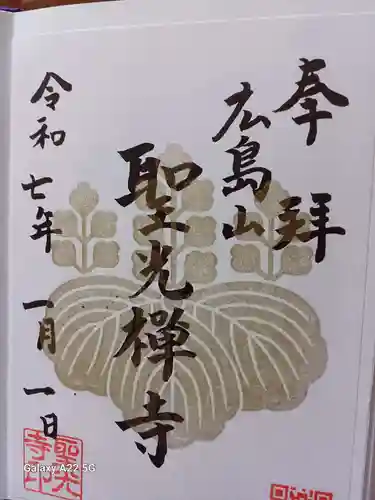 奉拝
広島山
聖光禅寺
令和七年一月一日
聖光
寺印
Galaxy A22 5G